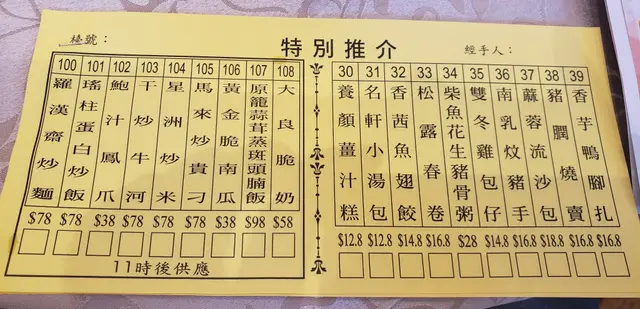 檯號：
特別推介
經手人：
100 101 102 103 104 105 106 107 108
羅漢齋炒麵
瑤柱蛋白炒飯
鮑汁鳳爪
干炒牛河
星洲炒米
馬來炒貴刁
黃金脆南瓜
原籠蒜茸蒸斑頭腩飯
大良脆奶
$78 $78 $38 $78 $78 $78 $38 $98 $58
11時後供應
30 31 32 33 34 35 36 37 38 39
養顏薑汁糕
名軒小湯包
香茜魚翅餃
松露春卷
柴魚花生豬骨粥
雙冬雞包仔
南乳炆豬手
蔴蓉流沙包
豬膶燒賣
香芋鴨腳扎
$12.8 $12.8 $14.8 $16.8 $28 $14.8 $16.8 $16.8 $16.8 $16.8